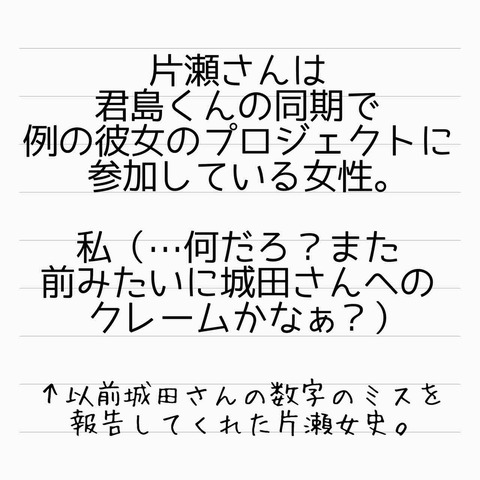 片瀬さんは
君島くんの同期で
例の彼女のプロジェクトに
参加している女性。
私（…何だろ？また
前みたいに城田さんへの
クレームかなぁ？）
↑以前城田さんの数字のミスを
報告してくれた片瀬女史。